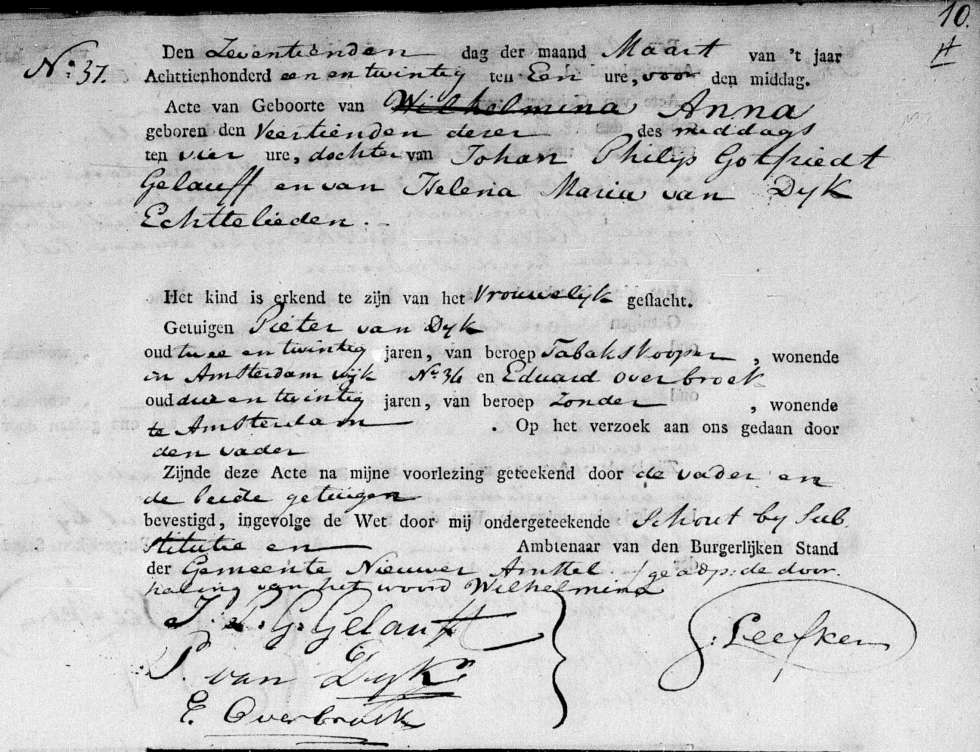 10
No. 37.
Den Zeventienden dag der maand Maart van 't jaar
Achttienhonderd een en twintig ten Een ure, voor den middag.
Acte van Geboorte van Wilhelmina Anna
geboren den Veertienden dezer des middags
ten vier ure, dochter van Johan Philip Gotfriedt
Gelauff en van Helena Maria van Dyk
Echtelieden.
Het kind is erkend te zijn van het Vrouwelyk geslacht.
Getuigen Pieter van Dyk
oud twee en twintig jaren, van beroep Tabakskooper, wonende
in Amsterdam wyk No. 36 en Eduard overbroek
oud drie en twintig jaren, van beroep Zonder, wonende
te Amsterdam. Op het verzoek aan ons gedaan door
den vader
Zijnde deze Acte na mijne voorlezing geteekend door de vader en
de beide getuigen
bevestigd, ingevolge de Wet door mij ondergeteekende Schout by Sub
stitutie en Ambtenaar van den Burgerlijken Stand
der Gemeente Nieuwer Amstel / geapp: de door
haling van het woord Wilhelmina
J. P. G. Gelauff
P. van Dyk
E. Overbroek